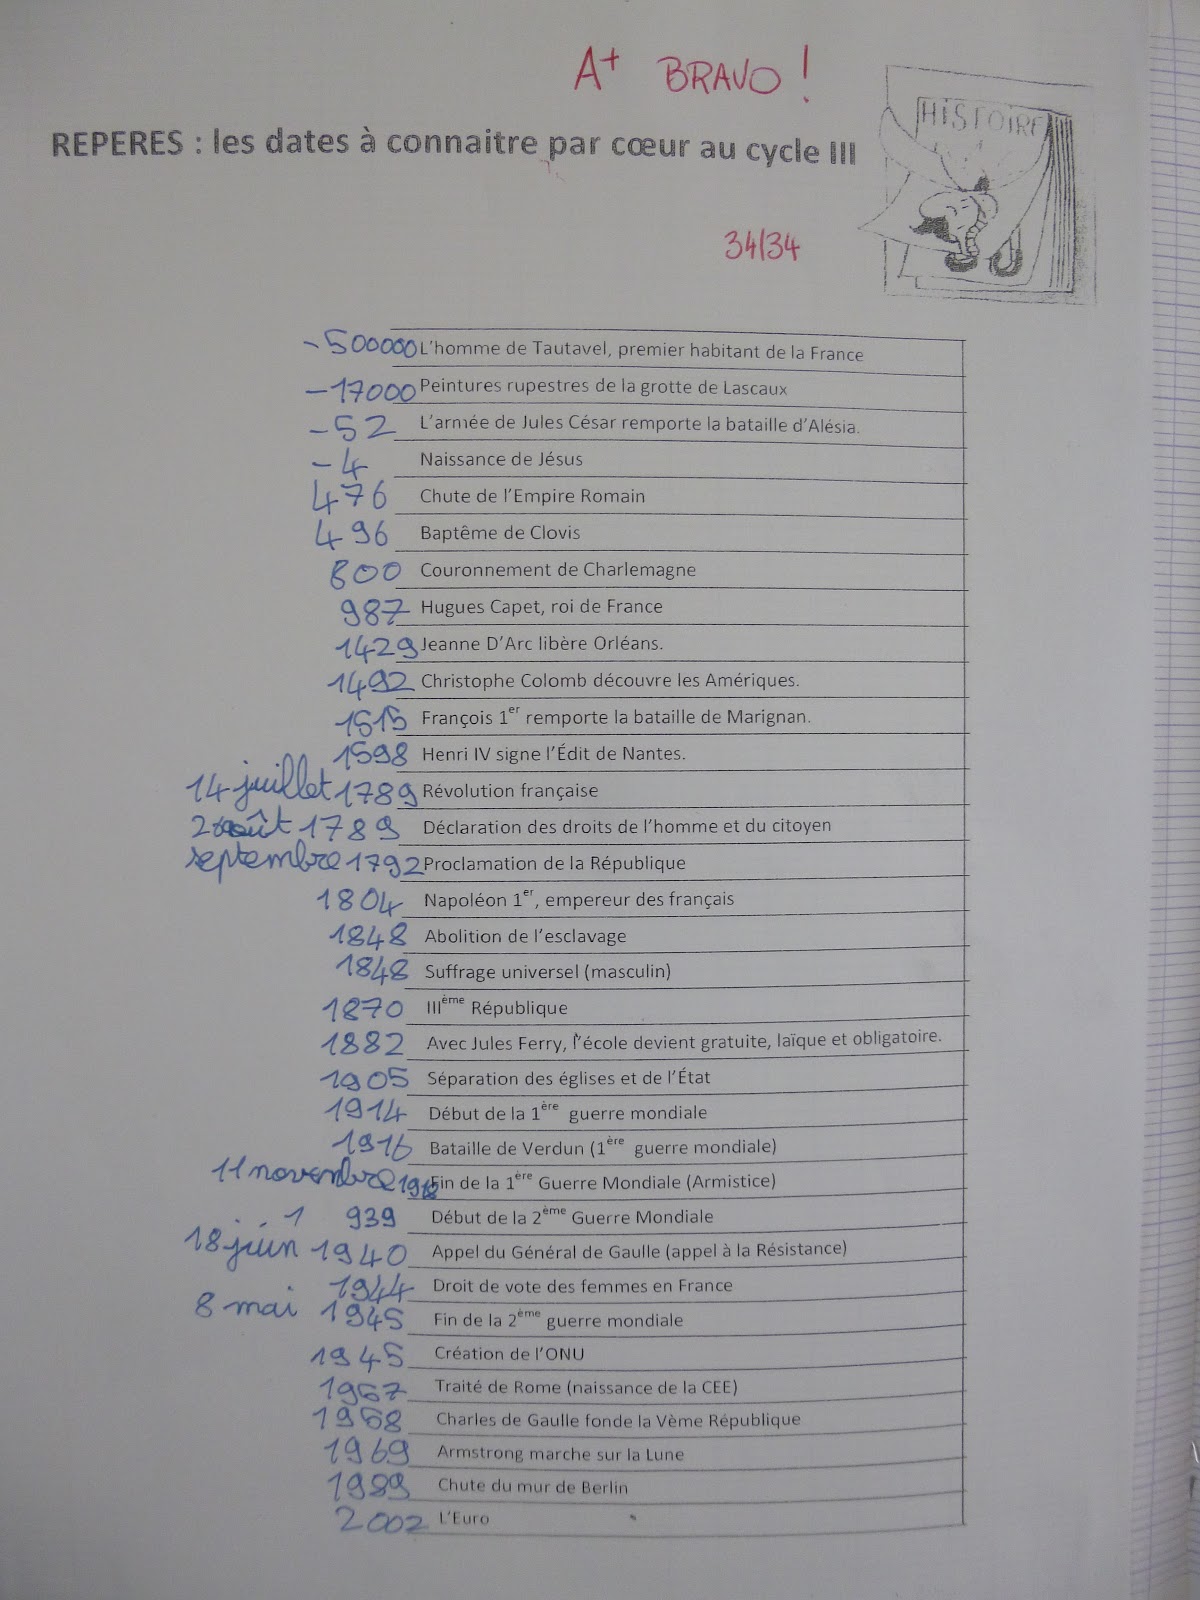 A+ BRAVO !
HISTOIRE
REPERES : les dates à connaitre par cœur au cycle III
34/34
-500000 L'homme de Tautavel, premier habitant de la France
-17000 Peintures rupestres de la grotte de Lascaux
-52 L'armée de Jules César remporte la bataille d'Alésia.
-4 Naissance de Jésus
476 Chute de l'Empire Romain
496 Baptême de Clovis
800 Couronnement de Charlemagne
987 Hugues Capet, roi de France
1429 Jeanne D'Arc libère Orléans.
1492 Christophe Colomb découvre les Amériques.
1515 François 1er remporte la bataille de Marignan.
1598 Henri IV signe l'Édit de Nantes.
14 juillet 1789 Révolution française
août 1789 Déclaration des droits de l'homme et du citoyen
septembre 1792 Proclamation de la République
1804 Napoléon 1er, empereur des français
1848 Abolition de l'esclavage
1848 Suffrage universel (masculin)
1870 IIIème République
1882 Avec Jules Ferry, l'école devient gratuite, laïque et obligatoire.
1905 Séparation des églises et de l'État
1914 Début de la 1ère guerre mondiale
1916 Bataille de Verdun (1ère guerre mondiale)
11 novembre 1918 Fin de la 1ère Guerre Mondiale (Armistice)
1 939 Début de la 2ème Guerre Mondiale
18 juin 1940 Appel du Général de Gaulle (appel à la Résistance)
1944 Droit de vote des femmes en France
8 mai 1945 Fin de la 2ème guerre mondiale
1945 Création de l'ONU
1957 Traité de Rome (naissance de la CEE)
1958 Charles de Gaulle fonde la Vème République
1969 Armstrong marche sur la Lune
1989 Chute du mur de Berlin
2002 L'Euro